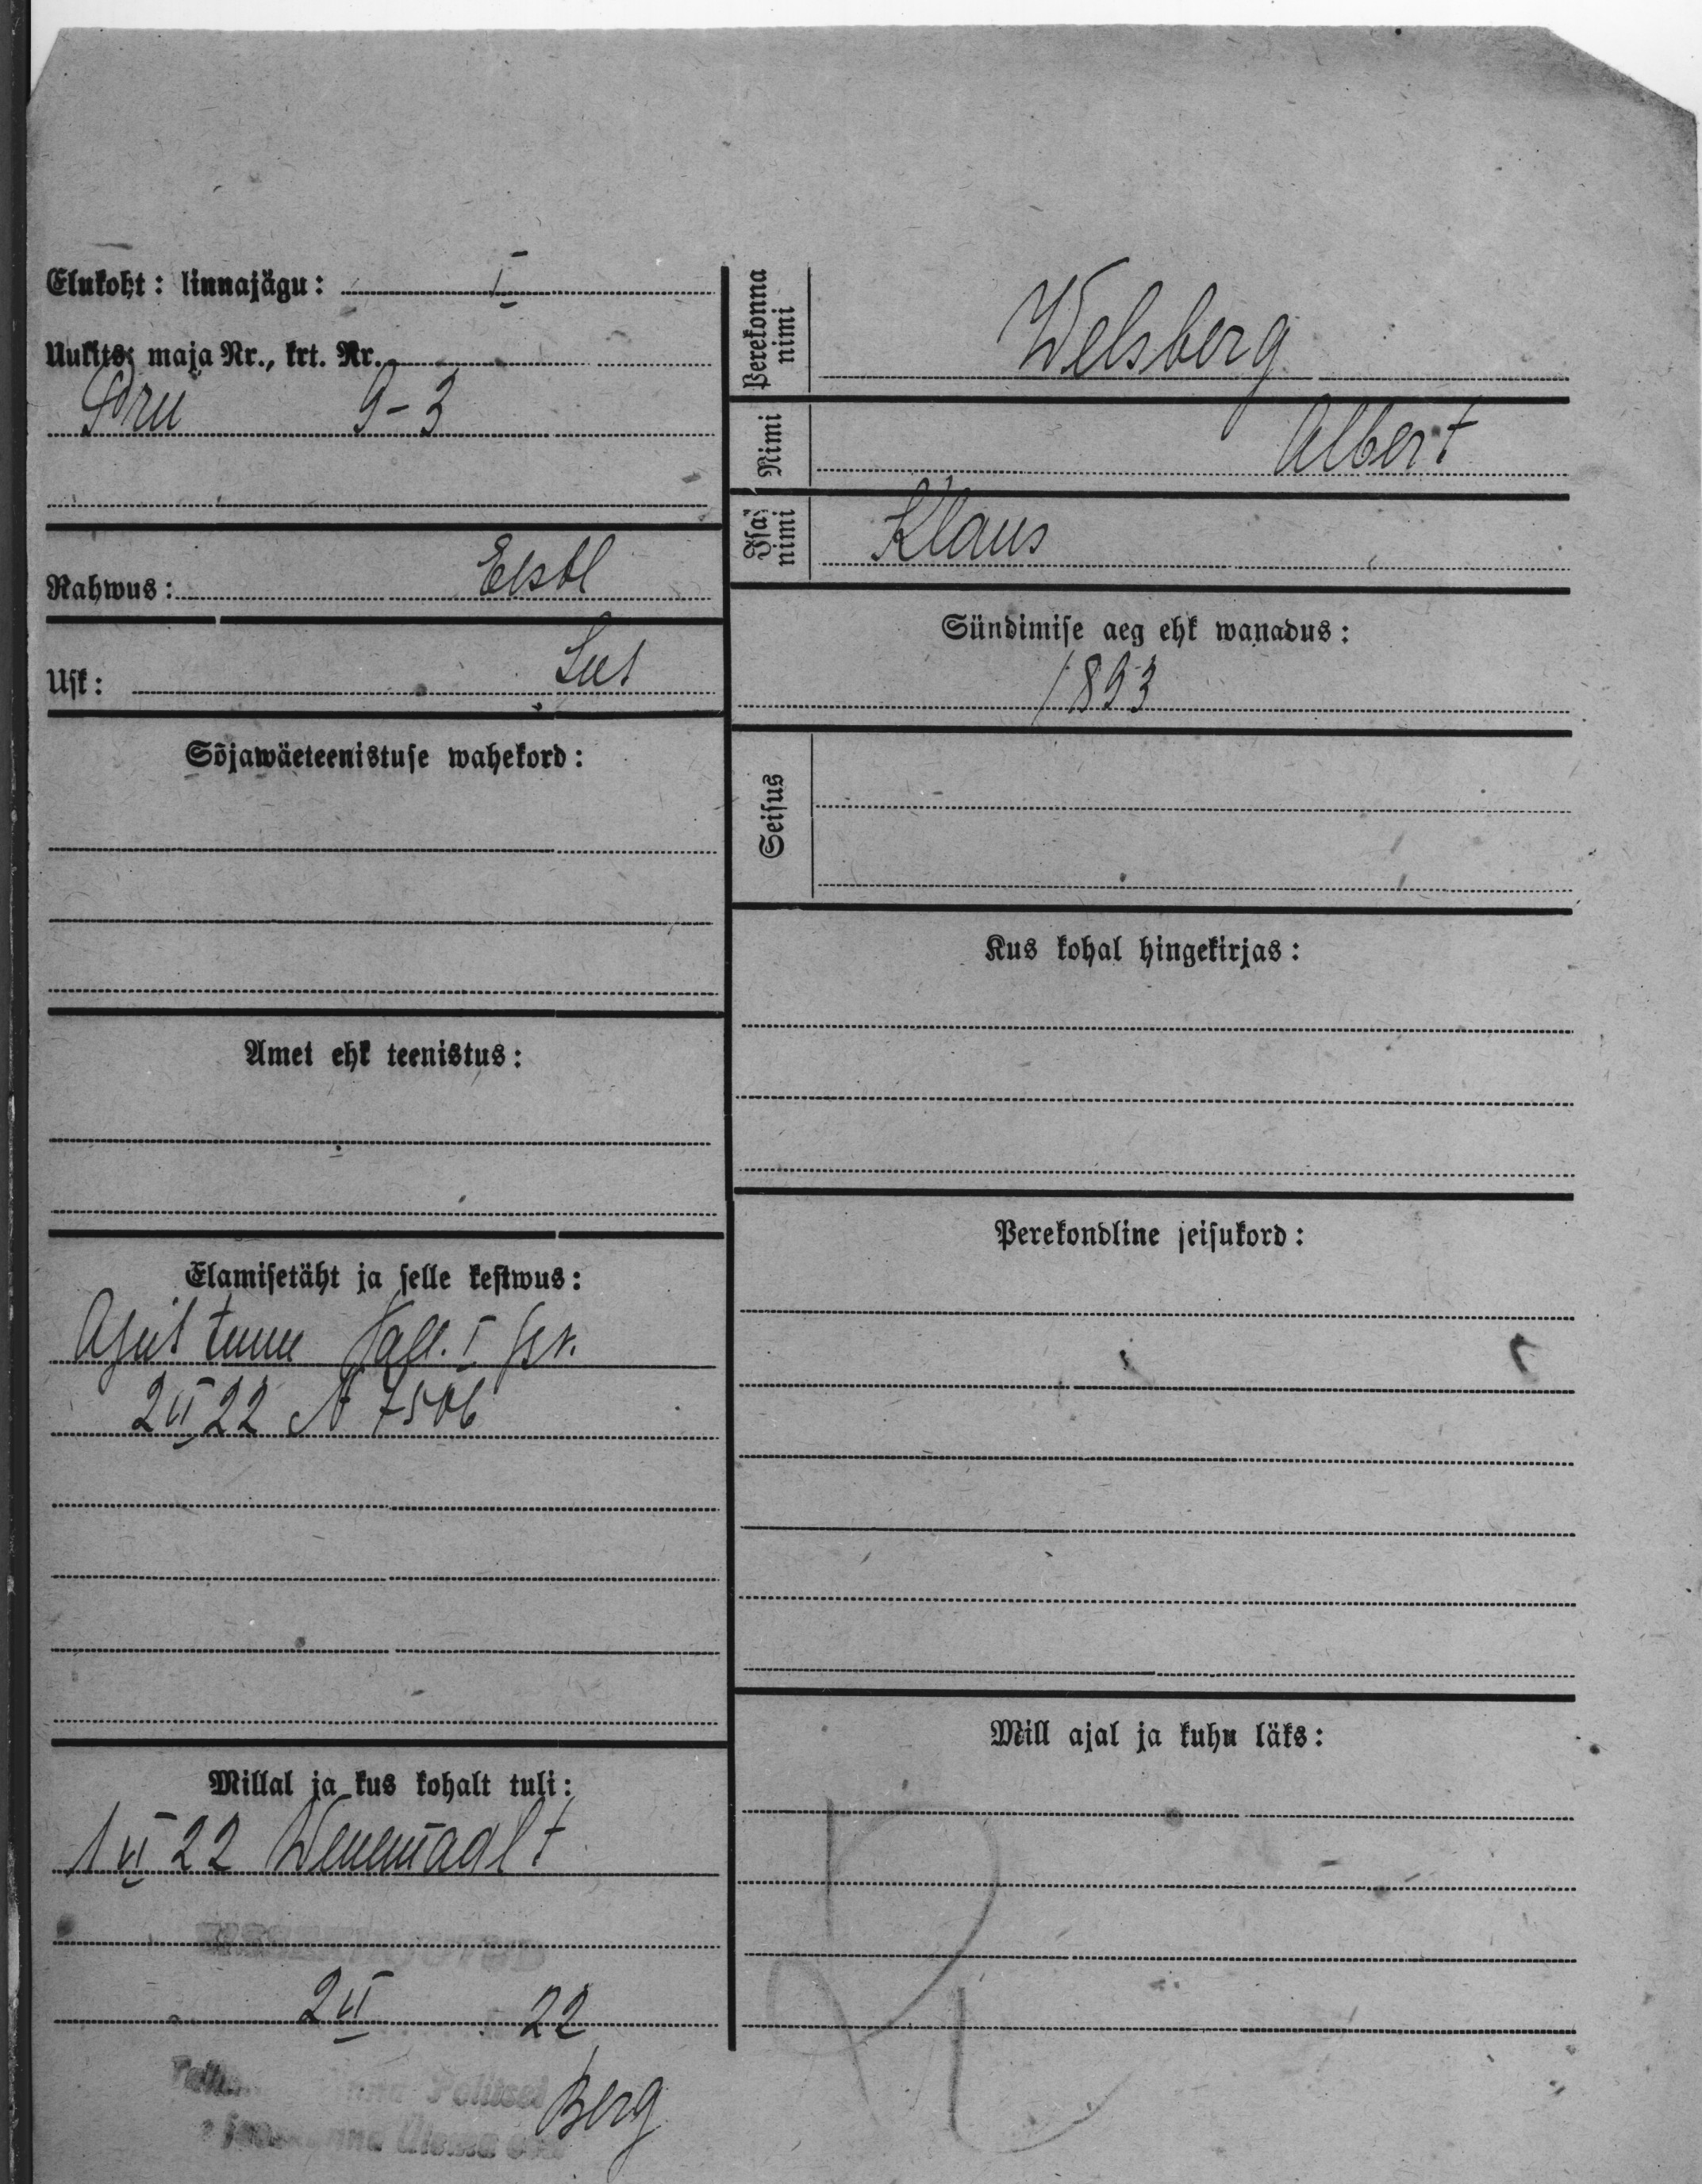 Elukoht: linnajägu: I
Uulits, maja Nr., krt. Nr.
Soru 9-3
Rahwus: Eestl
Usk: Lut
Sõjawäeteenistuse wahekord:
Amet ehk teenistus:
Elamisetäht ja selle kestwus:
Ajut tunn Tall. I jsk.
2 VI 22 N 7506
Millal ja kus kohalt tuli:
1 VI 22 Wenemaalt
2 VI 22
Politsei
Berg
Perekonna nimi
Welsberg
Nimi
Albert
Isa nimi
Klaus
Sündimise aeg ehk wanadus:
1893
Seisus
Kus kohal hingekirjas:
Perekondline seisukord:
Mill ajal ja kuhu läks: